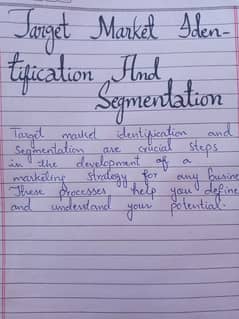 Target Market Iden-
tification And
Segmentation
Target market identification and
segmentation are crucial steps
in the development of a
marketing strategy for any busine
These processes help you define
and understand your potential.